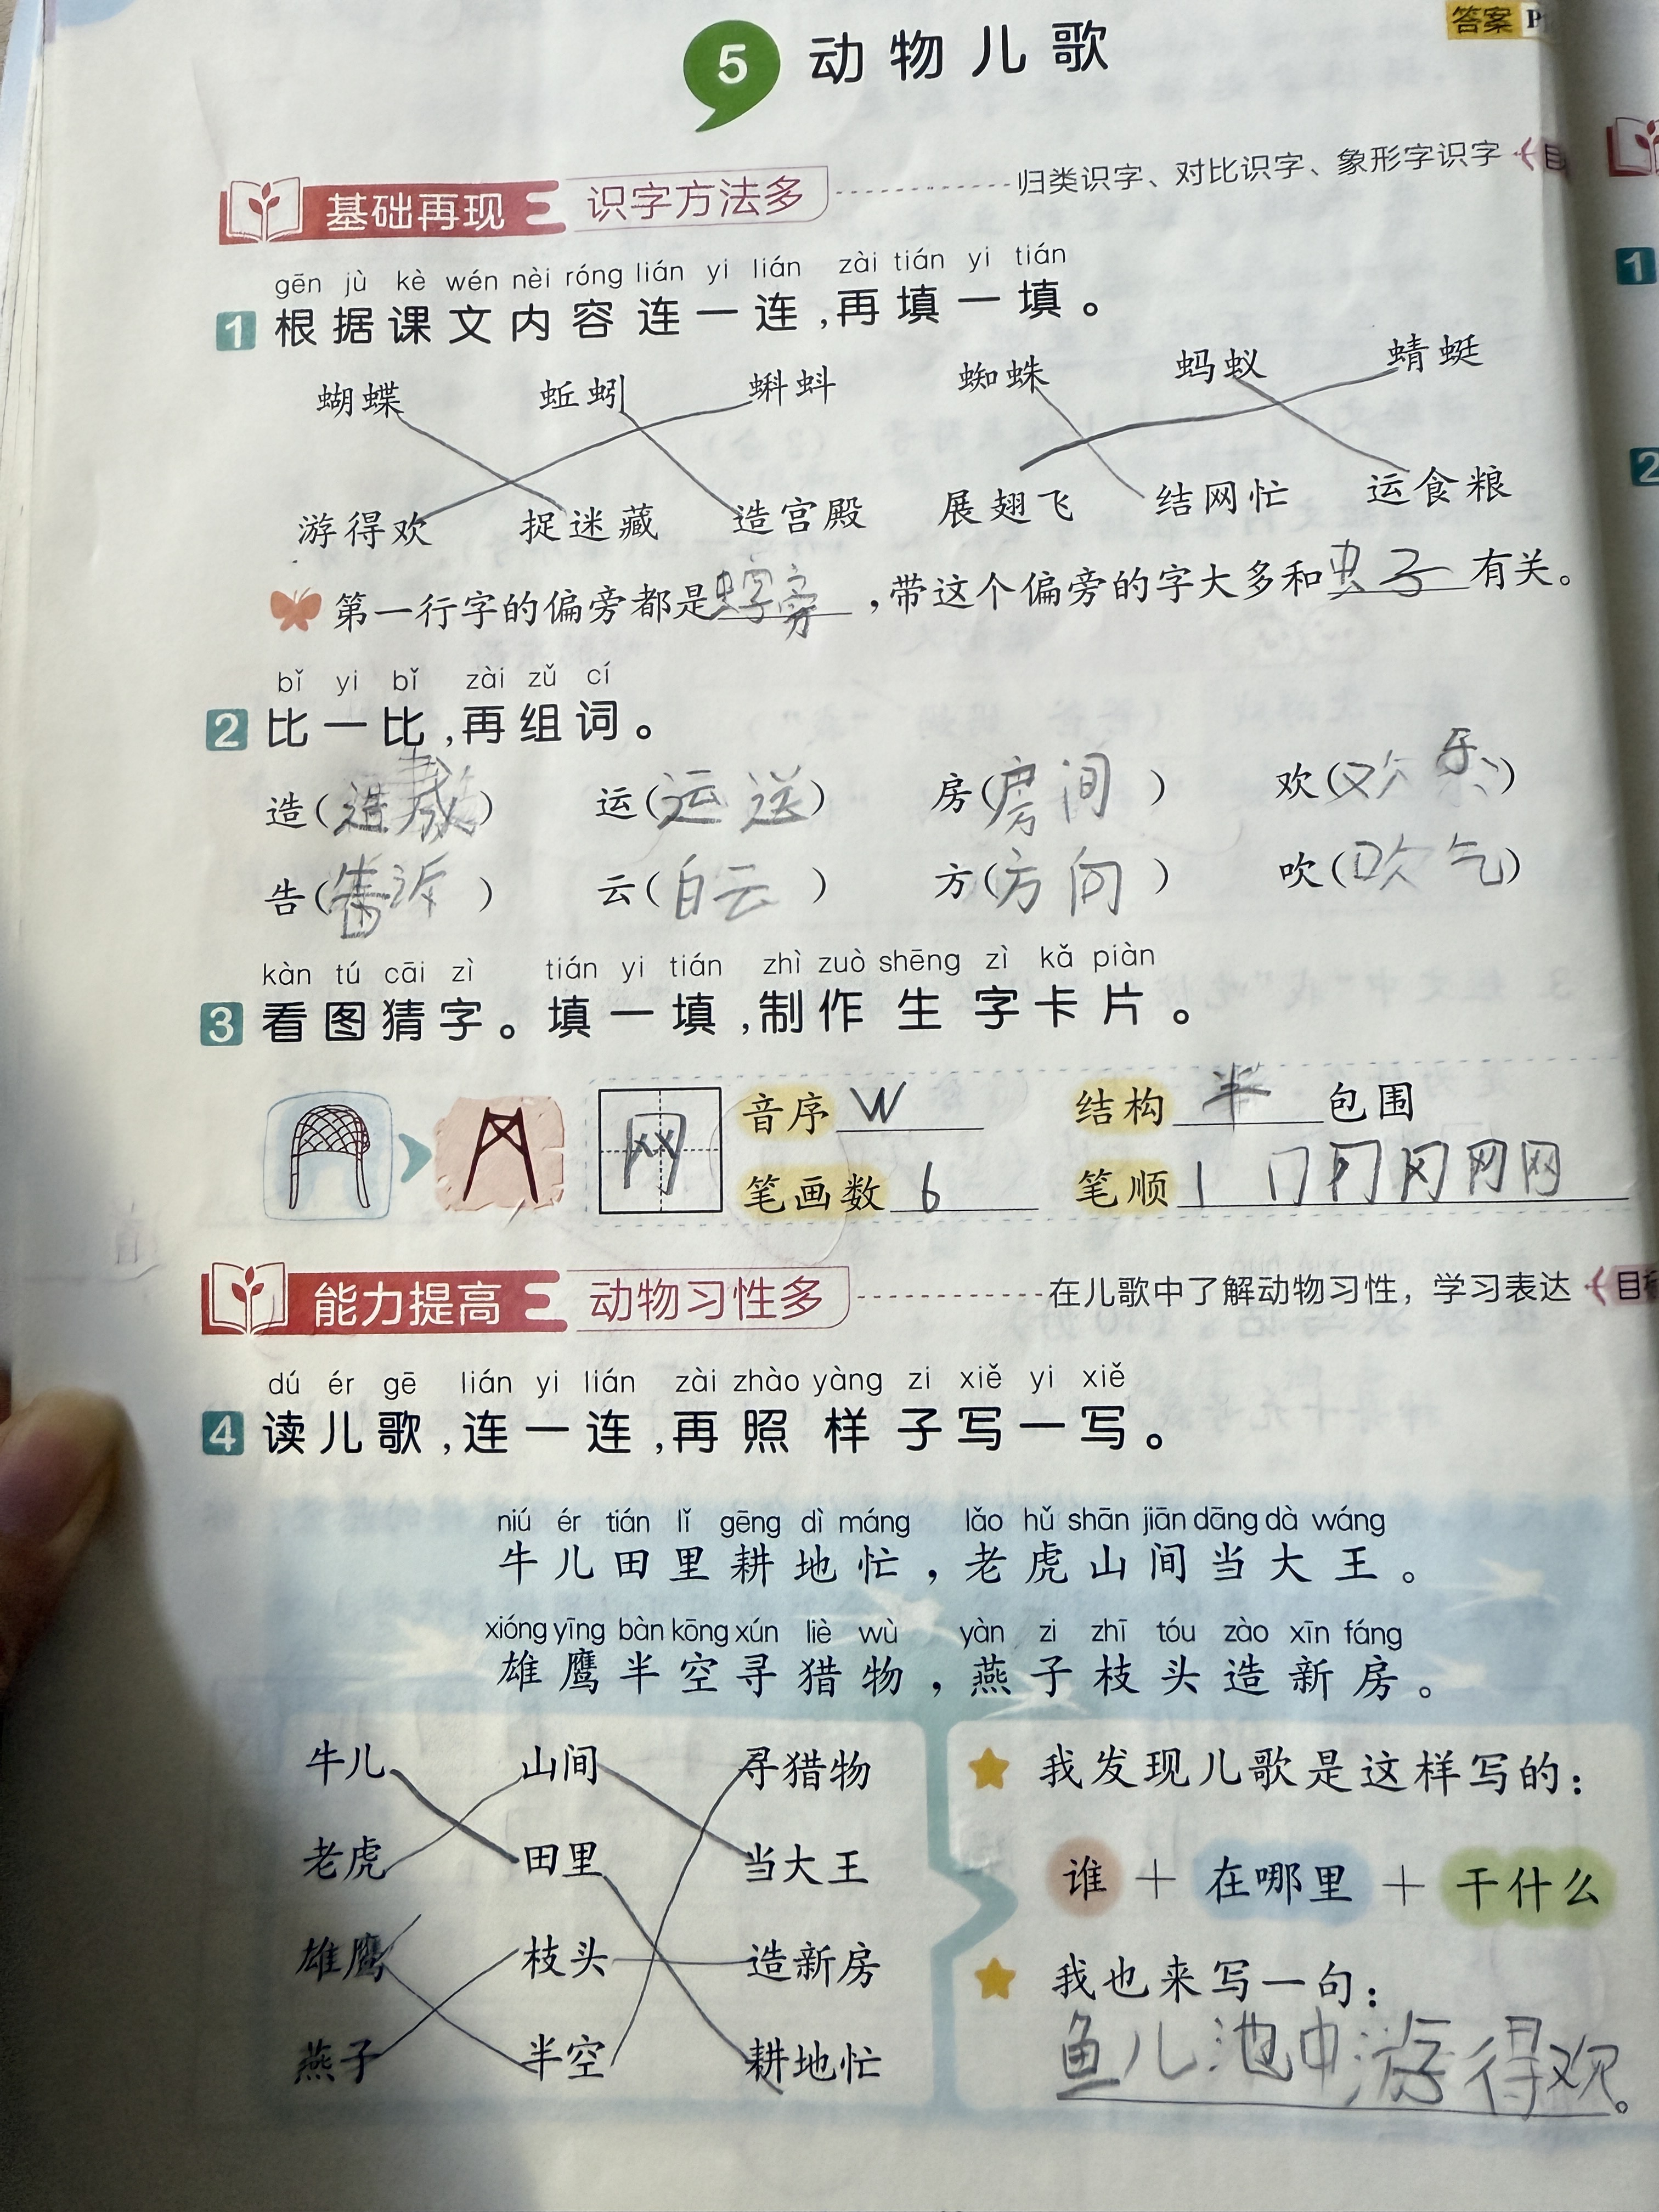 答案 P
5 动物儿歌
基础再现 识字方法多 归类识字、对比识字、象形字识字 目
gēn jù kè wén nèi róng lián yi lián zài tián yi tián
1 根据课文内容连一连,再填一填。
蝴蝶 蚯蚓 蝌蚪 蜘蛛 蚂蚁 蜻蜓
游得欢 捉迷藏 造宫殿 展翅飞 结网忙 运食粮
第一行字的偏旁都是虫字旁,带这个偏旁的字大多和虫子有关。
bǐ yi bǐ zài zǔ cí
2 比一比,再组词。
造(造) 运(运送) 房(房间) 欢(欢乐)
告(告诉) 云(白云) 方(方向) 吹(吹气)
kàn tú cāi zì tián yi tián zhì zuò shēng zì kǎ piàn
3 看图猜字。填一填,制作生字卡片。
网 音序 W 结构 半 包围
笔画数 6 笔顺 丨 冂
能力提高 动物习性多 在儿歌中了解动物习性，学习表达 目标
dú ér gē lián yi lián zài zhào yàng zi xiě yi xiě
4 读儿歌,连一连,再照样子写一写。
niú ér tián lǐ gēng dì máng lǎo hǔ shān jiān dāng dà wáng
牛儿田里耕地忙，老虎山间当大王。
xióng yīng bàn kōng xún liè wù yàn zi zhī tóu zào xīn fáng
雄鹰半空寻猎物，燕子枝头造新房。
牛儿 山间 寻猎物
老虎 田里 当大王
雄鹰 枝头 造新房
燕子 半空 耕地忙
我发现儿歌是这样写的：
谁＋在哪里＋干什么
我也来写一句：
鱼儿池中游得欢。
1
2